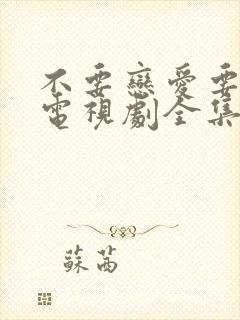 不要戀愛要
電視劇全集
蘇茜